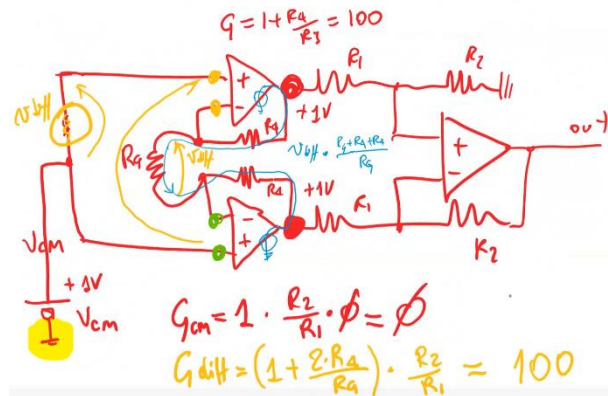 G = 1 + R4/R3 = 100
R1
R2
+
-
+1V
vdiff
R4
RG
vdiff
vdiff · (RG+R4+R4)/RG
out
+
-
R4
+1V
-
+
R1
R2
Vcm
+1V
Vcm
Gcm = 1 · R2/R1 · ∅ = ∅
Gdiff = (1 + 2·R4/RG) · R2/R1 = 100